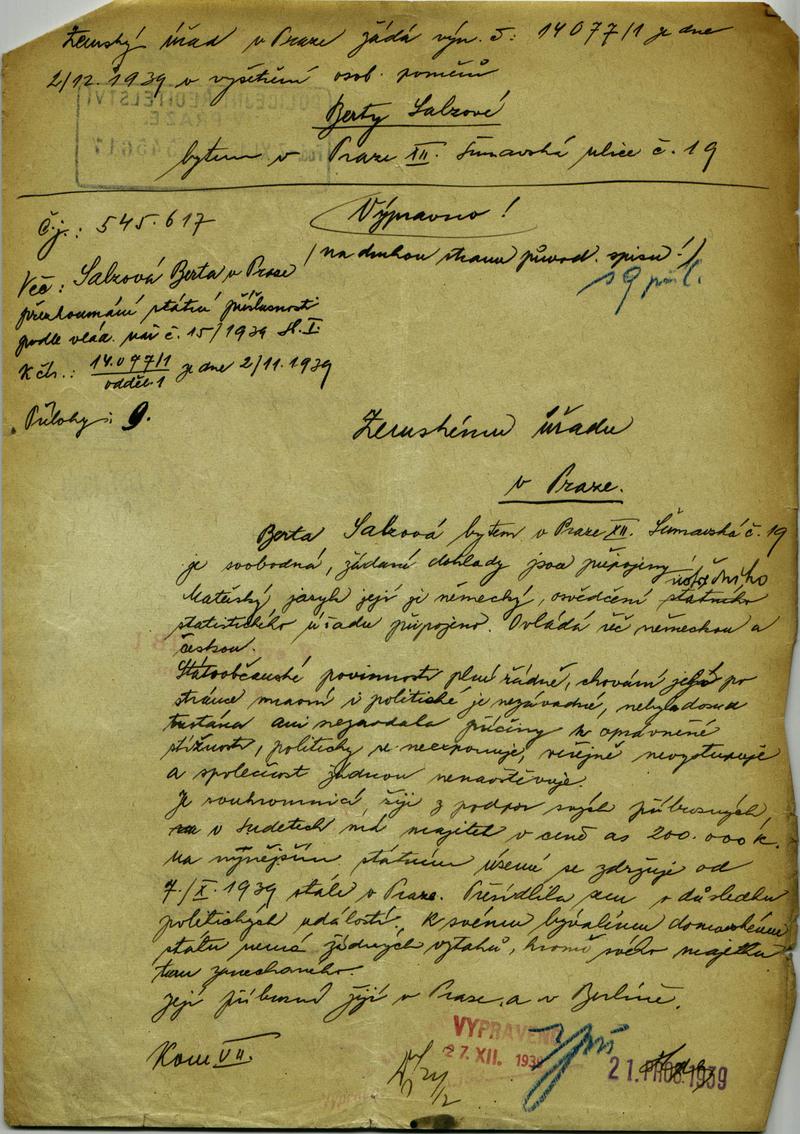 Zemský úřad v Praze žádá výn. č: 14077/1 ze dne
2/12.1939 o vyšetření osob. poměrů
Berty Salzové
bytem v Praze XII. Šumavská ulice č. 19
POLICEJNÍ ŘEDITELSTVÍ
V PRAZE.
545617
Č.j.: 545.617
Výpravno!
(na druhou stranu původ. spisu!)
19 příl.
Věc: Salzová Berta v Praze
přezkoumání státní příslušnosti
podle vlád. nař č. 15/1939 Sb. I.
K čís.: 14.077/1 ze dne 2/11.1939
odděl. 1
Přílohy: 9.
Zemskému úřadu
v Praze.
Berta Salzová bytem v Praze XII. Šumavská č. 19
je svobodná, žádané doklady jsou připojeny.
ústředního
Mateřský jazyk její je německý, osvědčení státního
statistického úřadu připojeno. Ovládá řeč německou a
českou.
Státoobčanské povinnosti plní řádně, chování její po
stránce mravní i politické je nezávadné, nebyla dosud
trestána ani nezavdala příčiny k oprávněné
stížnosti, politicky se neexponuje, veřejně nevystupuje
a společnost žádnou nenavštěvuje.
Je soukromnicí, žije z podpor svých příbuzných,
v Sudetech má majetek v ceně as 200.000 K.
Na nynějším státním území se zdržuje od
7./X. 1939 stále v Praze. Přesídlila sem v důsledku
politických událostí, k svému bývalému domovskému
státu nemá žádných vztahů, kromě svého majetku
tam zanechaného.
Její příbuzní žijí v Praze, a v Berlíně.
Kom VII.
VYPRAVENO
27. XII. 1939
21. PROS. 1939